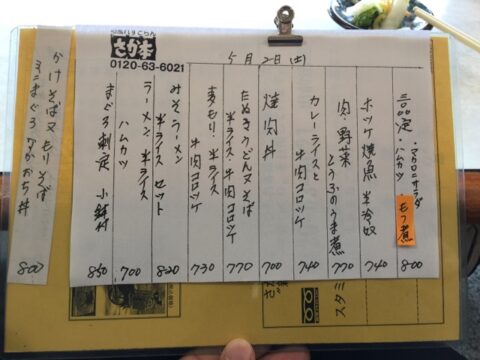 さか本
0120-63-6021
5月2日(土)
三品定 ・マカロニサラダ ・ハムカツ ・もつ煮 800
ホッケ焼魚 半冷奴 740
肉・野菜 とうふのうま煮 770
カレーライスと 牛肉コロッケ 740
焼肉丼 700
たぬきうどん又そば 半ライス・牛肉コロッケ 770
麦もり・半ライス 牛肉コロッケ 730
みそラーメン 半ライス セット 820
ラーメン・半ライス ハムカツ 700
まぐろ刺定 小鉢付 850
かけそば又もりそば ミニまぐろ 800
スタミ